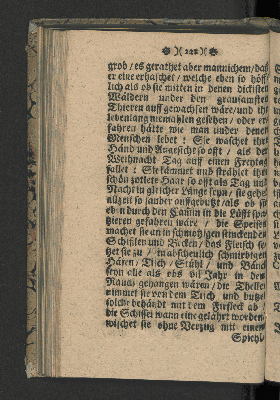 )( 222 )(
grob / es gerathet aber mannichem / daß
er eine erhaschet / welche eben so höff-
lich als ob sie mitten in denen dickisten
Wäldern under den grausamsten
Thieren auff gewachsen wäre / und ihr
lebenlang niemahlen gesehen / oder er-
fahren hätte wie man under denen
Menschen lebet: Sie waschet ihr
Händ und Angesicht so offt / als der
Weihnacht Tag auff einen Freytag
fallet: Sie kämmet und strählet ihr
schön zottlets Haar so offt als Tag und
Nacht in gleicher Länge seyn / sie gehet
allzeit so sauber auffgebutzt / als ob sie
eben durch den Camin in die Lüfft spa-
tzieren gefahren wäre / die Speisen
machet sie an in schmotzigen stinckenden
Schüßlen und Becken / das Fleisch so-
tzet sie zu / in abscheulich schmirbigen
Häfen / Tisch / Stühl / und Bänck
seyn alle als obs Jahr in dem
Rauch gehangen wären / die Theller
nimmet sie von dem Tisch und butzet
solche behändt mit dem Firfleck ab /
die Schüssel wann eine gelährt worden /
wischet sie ohne Verzug mit einem
Spiehl-